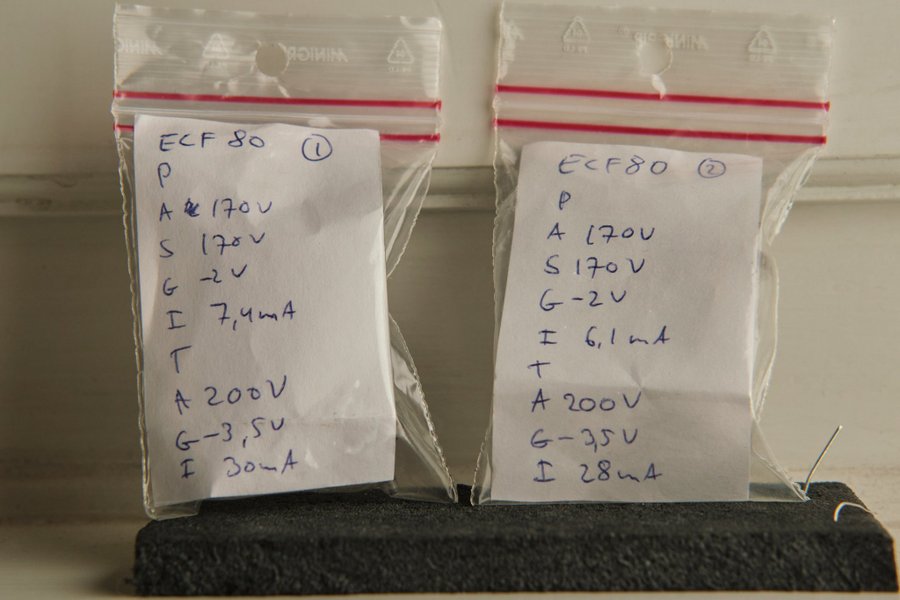 ECF 80 ①
P
A 170V
S 170V
G -2V
I 7,4mA
T
A 200V
G -3,5V
I 30mA
ECF80 ②
P
A 170V
S 170V
G -2V
I 6,1mA
T
A 200V
G -3,5V
I 28mA